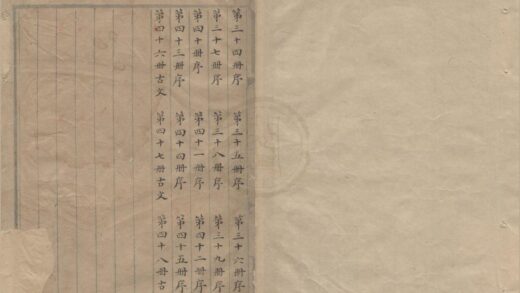 第三十四册序 第三十五册序 第三十六册序
第三十七册序 第三十八册序 第三十九册序
第四十册序 第四十一册序 第四十二册序
第四十三册序 第四十四册序 第四十五册序
第四十六册古文 第四十七册古文 第四十八册古